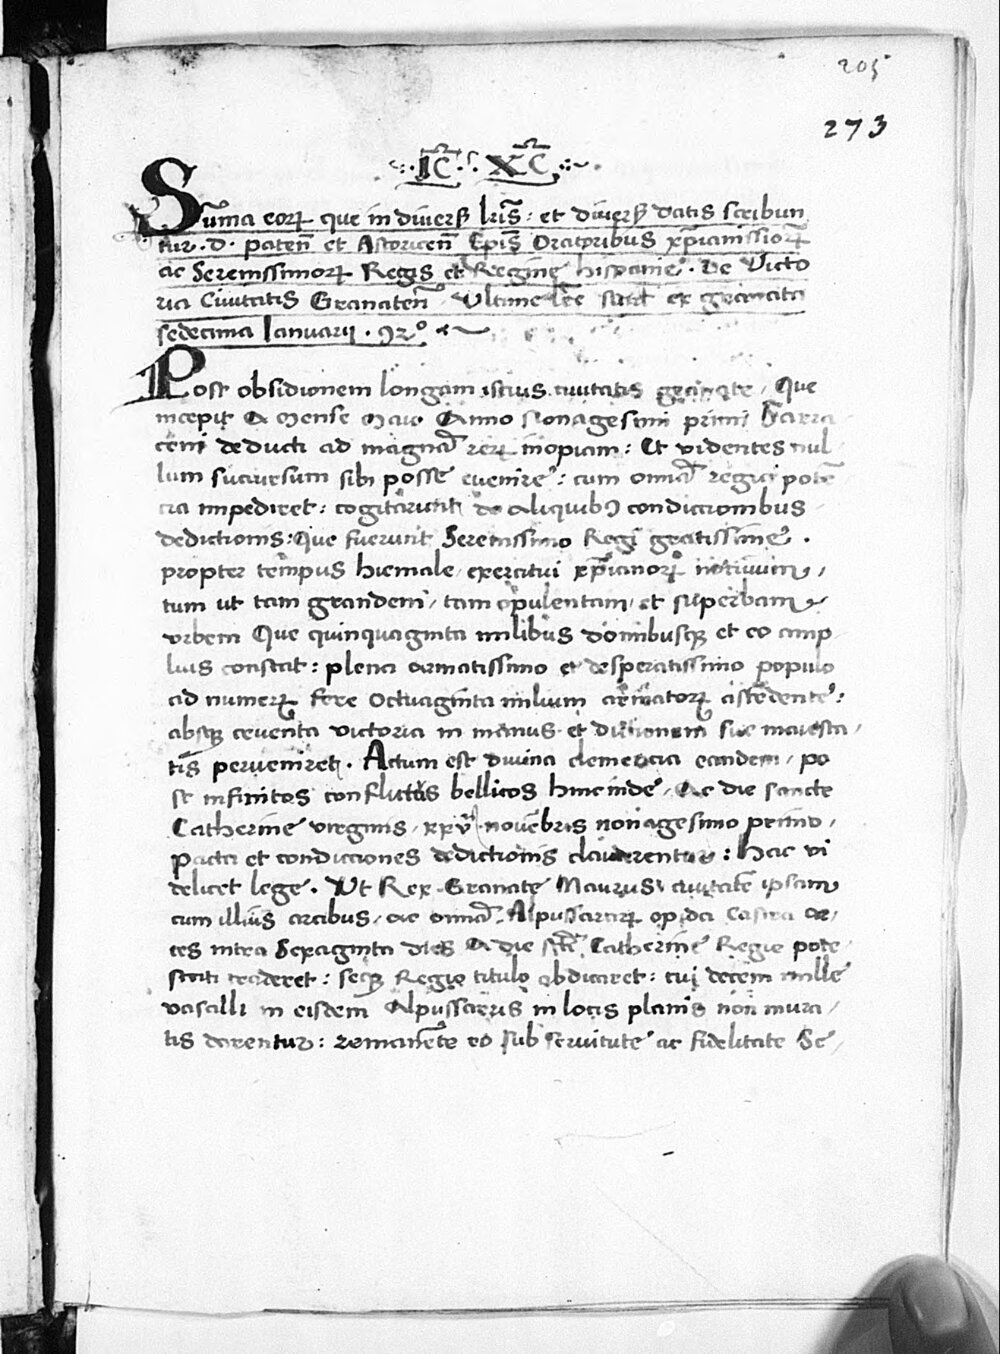 205
273
IC̄ · XC̄
Sum̄a eoꝝ que in diuersꝭ lr̄is: et diuersꝭ datis scribun
tur. d. paten̄ et Astoricen̄ Ep̄is Oratoribus xp̄ianissioꝝ
ac Serenissimoꝝ Regis et Regine hispanie. De Victo
ria Ciuitatis Granaten̄ Ultime lr̄e sunt ex granata
sedecima Ianuarij. 92º
Post obsidionem longam istius ciuitatis granate, Que
incepit a mense maio Anno nonagesimi primi Sarra
ceni deducti ad magnā reꝝ inopiam: Et videntes nul
lum sucursum sibi posse euenire: cum omīa regia potē
cia impediret: cogitarunt de aliquibꝰ condictionibus
dedictionis: Que fuerunt Serenissimo Regi gratissime.
propter tempus hiemale, exercitui xp̄ianoꝝ
tum ut tam grandem, tam opulentam, et superbam
vrbem Que quinquaginta milibus domibusqꝫ et eo amp
lius constat: plena armatissimo et desperatissimo populo
ad numerꝝ fere Octuaginta milium armatoꝝ ascedente:
absqꝫ cruenta victoria in manus et dictionem sue maiesta
tis perueniret. Actum est diuina clemencia eandem, po
st infinitos conflictus bellicos hinc inde, Ac die sancte
Catherine virginis, xxv nouēbris nonagesimo primo,
pacta et condicciones dedictionis clauderentur: hac vi
delicet lege. Ut Rex Granate Maurus ciuitatē ipsam
cum illius arcibus, ac omīa Alpussararꝝ opida Castra ar,
ces intra Sexaginta dies A die sctē Catherine Regie pote
stati traderet: seqꝫ Regio titulo abdicaret: cui decem mille
vasalli in eisdem Alpussaris in locis planis non mura
tis darentur: remanēte eo sub seruitute ac fidelitate Se